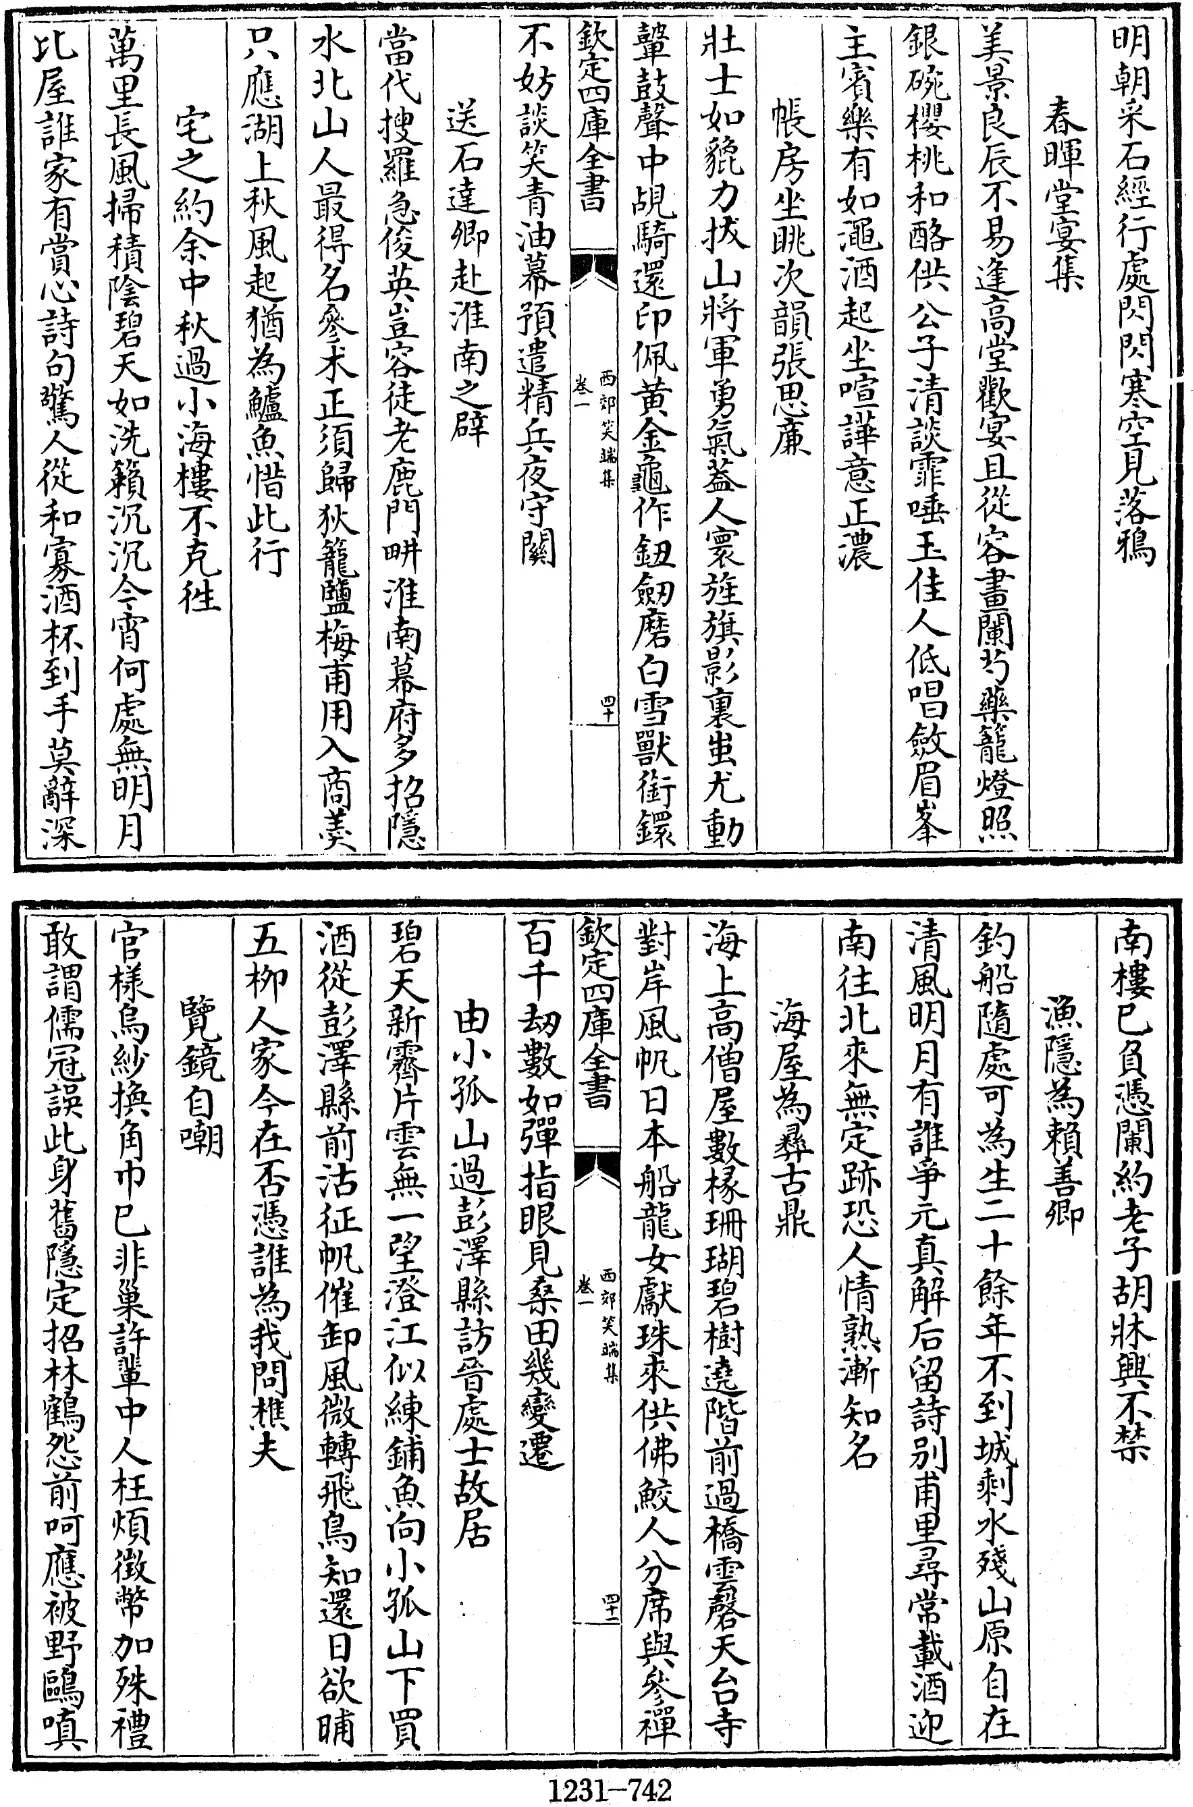 明朝采石經行處閃閃寒空見落鴉
春暉堂宴集
美景良辰不易逢高堂歡宴且從容畫闌芍藥籠燈照
銀碗櫻桃和酪供公子清談霏唾玉佳人低唱斂眉峯
主賓樂有如澠酒起坐喧譁意正濃
帳房坐眺次韻張思廉
壯士如貔力拔山將軍勇氣蓋人寰旌旗影裏蚩尤動
鼙鼓聲中覘騎還印佩黄金龜作鈕劒磨白雪獸銜鐶
欽定四庫全書
西郊笑端集
卷一
四十
不妨談笑青油幕預遣精兵夜守關
送石達卿赴淮南之辟
當代搜羅急俊英豈容徒老鹿門畊淮南幕府多招隱
水北山人最得名參术正須歸狄籠鹽梅甫用入商羮
只應湖上秋風起猶為鱸魚惜此行
宅之約余中秋過小海樓不克徃
萬里長風掃積陰碧天如洗籟沉沉今宵何處無明月
比屋誰家有賞心詩句驚人從和寡酒杯到手莫辭深
南樓已負憑闌約老子胡牀興不禁
漁隱為賴善卿
釣船隨處可為生二十餘年不到城剩水殘山原自在
清風明月有誰爭元真解后留詩別甫里尋常載酒迎
南往北來無定跡恐人情熟漸知名
海屋為彝古鼎
海上高僧屋數椽珊瑚碧樹遶階前過橋雲磬天台寺
對岸風帆日本船龍女獻珠來供佛鮫人分席與參禪
欽定四庫全書
西郊笑端集
卷一
四十一
百千劫數如彈指眼見桑田幾變遷
由小孤山過彭澤縣訪晉處士故居
碧天新霽片雲無一望澄江似練鋪魚向小孤山下買
酒從彭澤縣前沽征帆催卸風微轉飛鳥知還日欲晡
五柳人家今在否憑誰為我問樵夫
覽鏡自嘲
官様烏紗換角巾已非巢許輩中人枉煩徵幣加殊禮
敢謂儒冠誤此身舊隱定招林鶴怨前呵應被野鷗嗔
1231—742